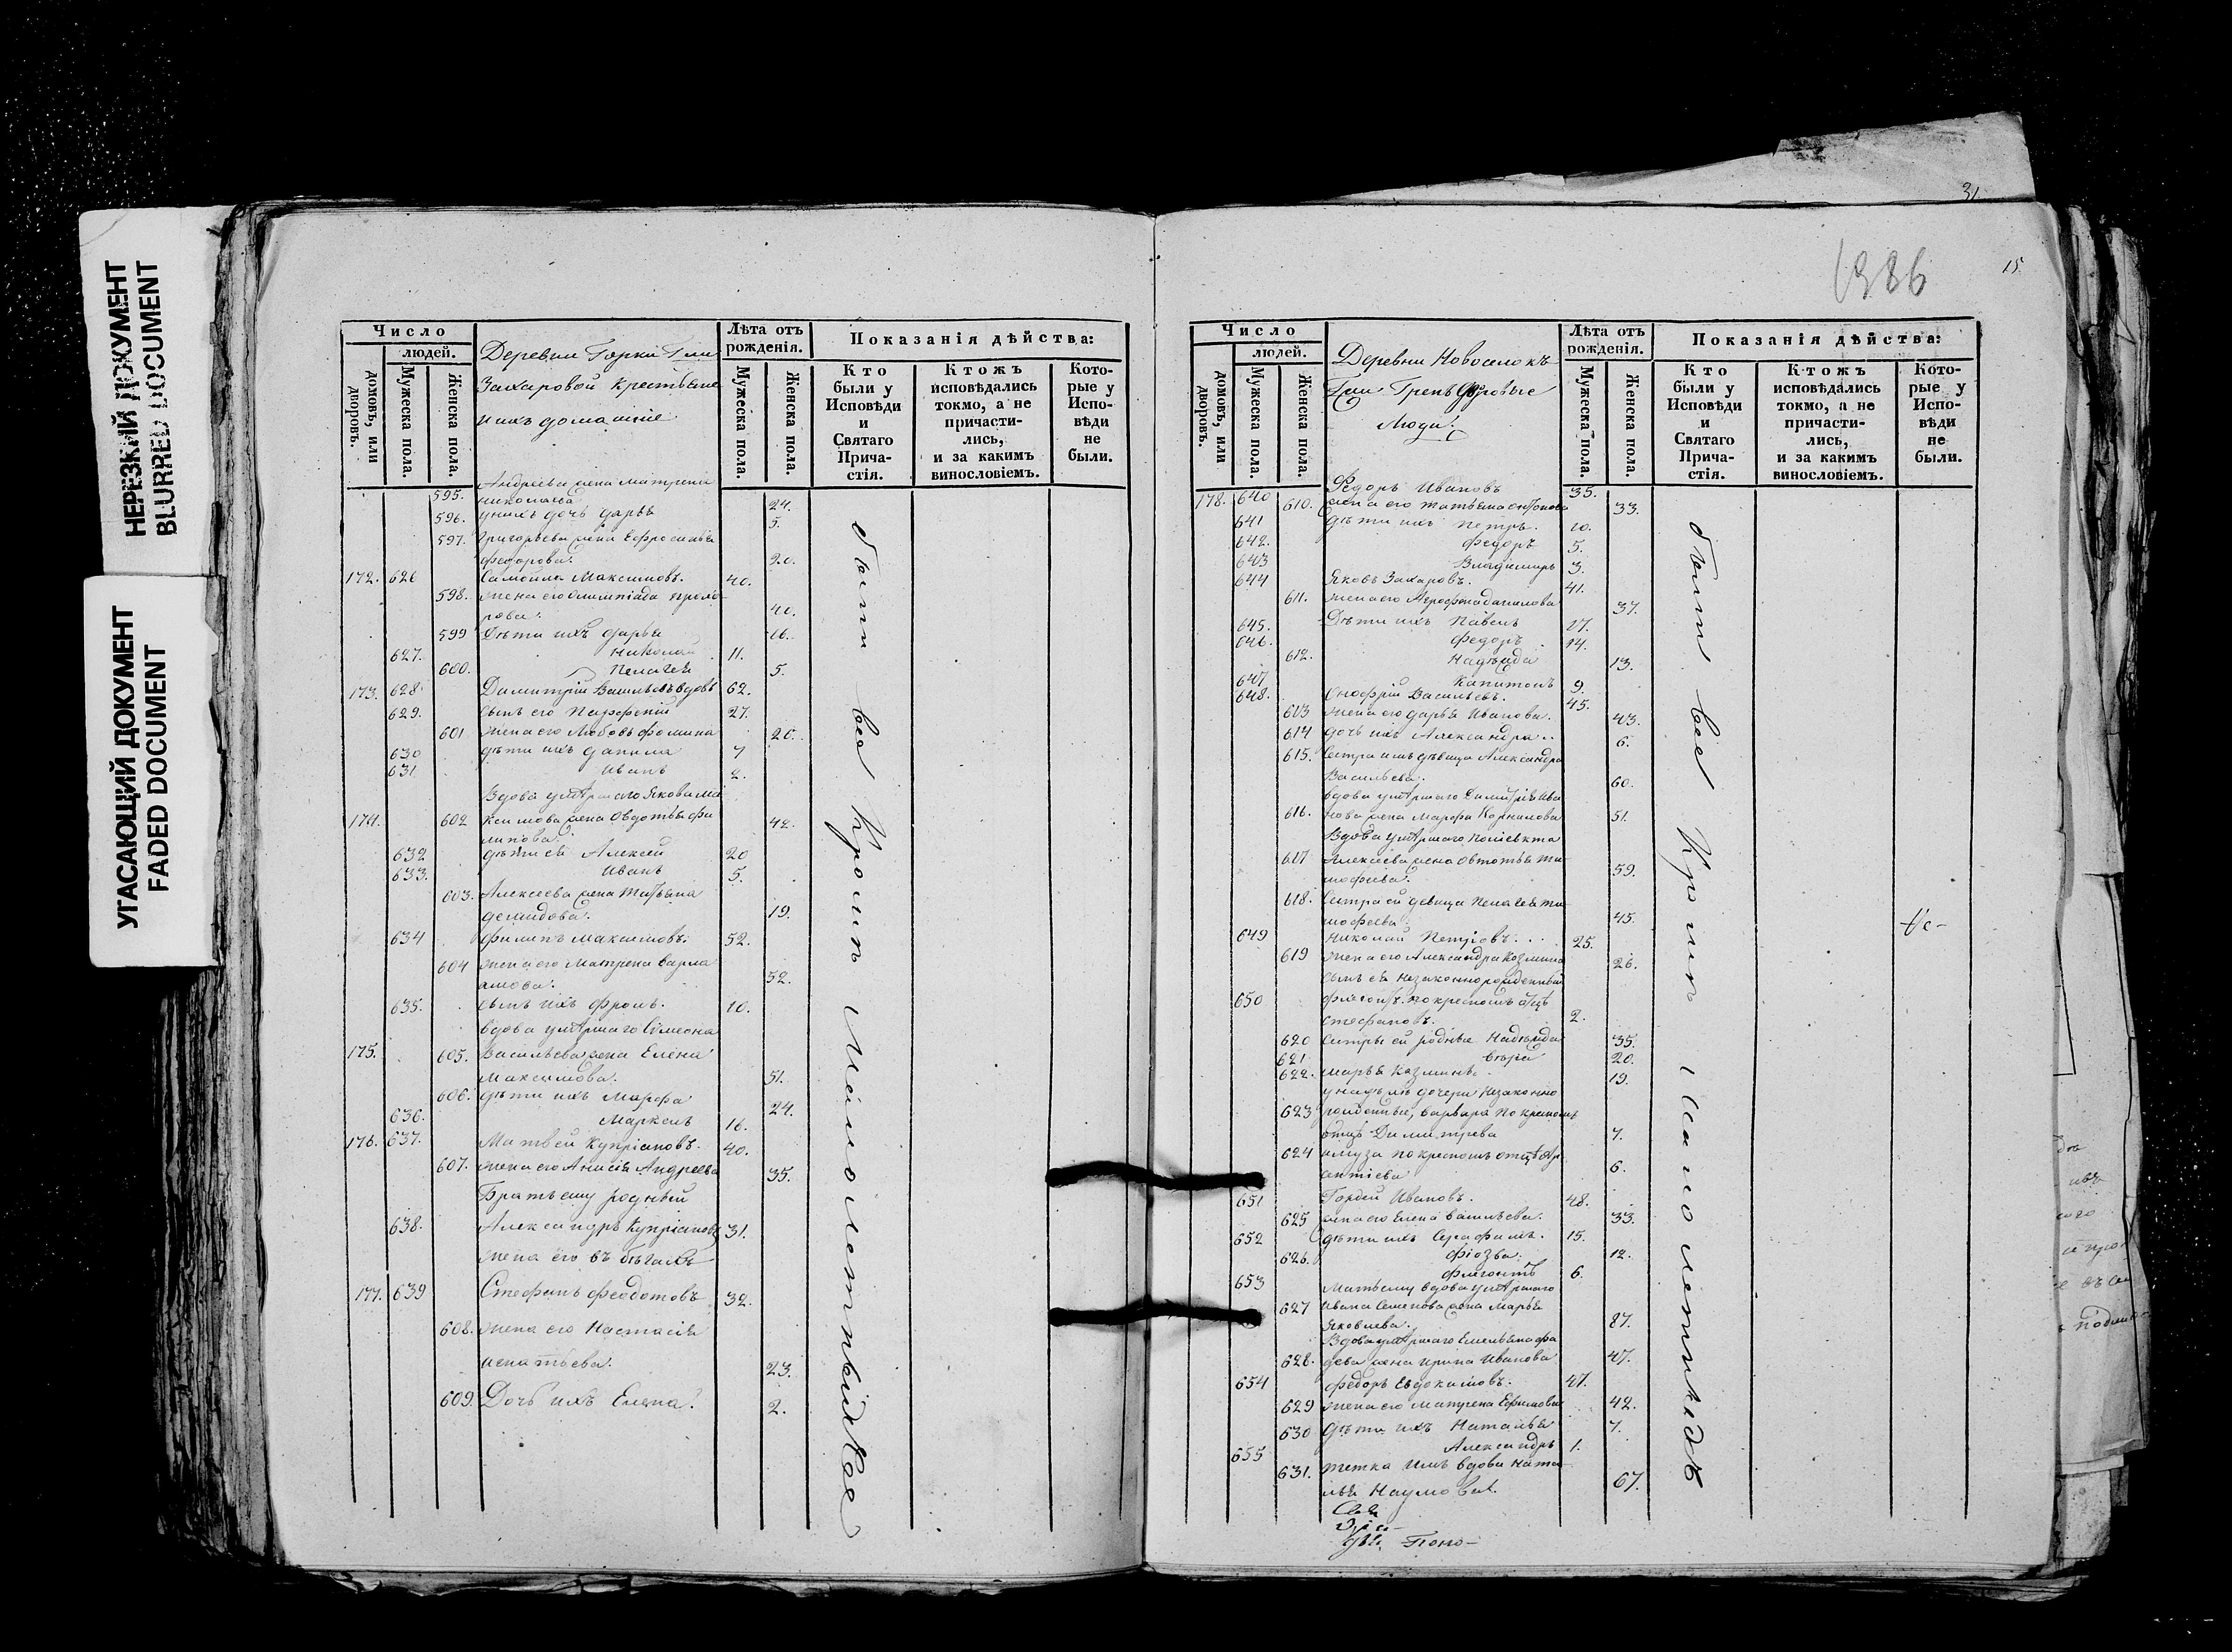 НЕРЕЗКИЙ ДОКУМЕНТ
BLURRED DOCUMENT
УГАСАЮЩИЙ ДОКУМЕНТ
FADED DOCUMENT
Число
людей.
домовъ, или дворовъ.
Мужеска пола.
Женска пола.
Деревни Горки
Захаровой крестьяне
и ихъ домашніе
Лѣта отъ рожденія.
Мужеска пола.
Женска пола.
Показанія дѣйства:
Кто были у Исповѣди и Святаго Прича-стія.
Ктожъ исповѣдались токмо, а не причасти-лись, и за какимъ винословіемъ.
Кото-рые у Испо-вѣди не были.
595. Андреева жена Матрена
24.
596. у нихъ дочь Дарья 5.
597. Григорьева жена Ефросинья
Федорова. 20.
172. 626 Самойла Максимовъ. 40.
598. жена его Олимпіада
40.
599 Дѣти ихъ Дарья 16.
627. Николай 11.
600. Пелагея 5.
173. 628 Димитрій Васильевъ вдовъ 62.
629. сынъ его Парфеній 27.
601 жена его Любовь Фомина 26.
630 дѣти ихъ Данила 7
631 Иванъ 2.
Вдова умершаго Якова Ма
174. 602 ксимова жена Овдотья Фи 42.
липова.
632 дѣти ея Алексей 20
633. Иванъ 5.
603. Алексеева жена Татьяна
Демидова. 19.
634 Филипъ Максимовъ. 52.
604 жена его Матрена Варла
амова. 52.
635. сынъ ихъ Фролъ. 10.
вдова умершаго Симеона
175. 605. Васильева жена Елена
Максимова. 51.
606. дѣти ихъ Марфа 24.
636. Маркелъ 16.
176. 637. Матвей Купріановъ. 40.
607. жена его Анисія Андреева 35.
Братъ ему родный
638. Александръ Купріановъ 31.
жена его въ бѣгахъ
177. 639 Стефанъ Феодотовъ 32.
608. жена его Настасія
Игнатьева. 23.
609. Дочь ихъ Елена. 2.
были все кроме малолетныхъ
31
1386
15
Число
людей.
домовъ, или дворовъ.
Мужеска пола.
Женска пола.
Деревни Новоселокъ
дворовые
люди.
Лѣта отъ рожденія.
Мужеска пола.
Женска пола.
Показанія дѣйства:
Кто были у Исповѣди и Святаго Прича-стія.
Ктожъ исповѣдались токмо, а не причасти-лись, и за какимъ винословіемъ.
Кото-рые у Испо-вѣди не были.
178. 640 Федоръ Ивановъ 35.
610. жена его Татьяна Антонова 33.
641 дѣти ихъ Петръ. 10.
642. Федоръ 5.
643 Владимиръ 3.
644 Яковъ Захаровъ. 41.
611. жена его Данилова 37.
645. Дѣти ихъ Павелъ 17.
646. Федоръ 14.
612. Надежда 13.
647 Капитонъ 9.
648. Онофрій Васильевъ. 45.
613 жена его Дарья Иванова. 43.
614 дочь ихъ Александра. 6.
615. Сестра имъ девица Александра
Васильева. 60.
вдова умершаго Димитрія Ива
616. нова жена Марфа Корнилова 51.
Вдова умершаго Полиевкта
617 Алексеева жена Овтотья Ти
мофеева. 59.
618. Сестра ей девица Пелагея Ти
мофеева. 45.
649 Николай Петровъ... 25.
619 жена его Александра Козмина 26.
сынъ ея незаконнорожденный
650 по крестномъ отцѣ
Стефановъ. 2.
620 Сестры ей родные Надежда 35.
621 Вера 20.
622. Марья Козмины. 19.
дочери незаконно
623 рожденные, Варвара по крестномъ
отцѣ Димитрева 7.
624 по крестномъ отцѣ
6.
651 Гордей Ивановъ. 48.
625 жена его Елена Васильева. 33.
652 дѣти ихъ Серафимъ. 15.
626. 12.
653 6.
Мать ему вдова умершаго
627 Ивана Семенова жена Марья
Яковлева. 87.
Вдова умершаго Емельяна Фа
628. деева жена Ирина Иванова 47.
654 Федоръ Евдокимовъ. 47.
629 жена его Матрена Ефимова 42.
630 Дѣти ихъ Наталья 7.
655 Александръ 1.
631. тетка имъ вдова Ната
лья Наумова. 67.
были все кроме малолетныхъ